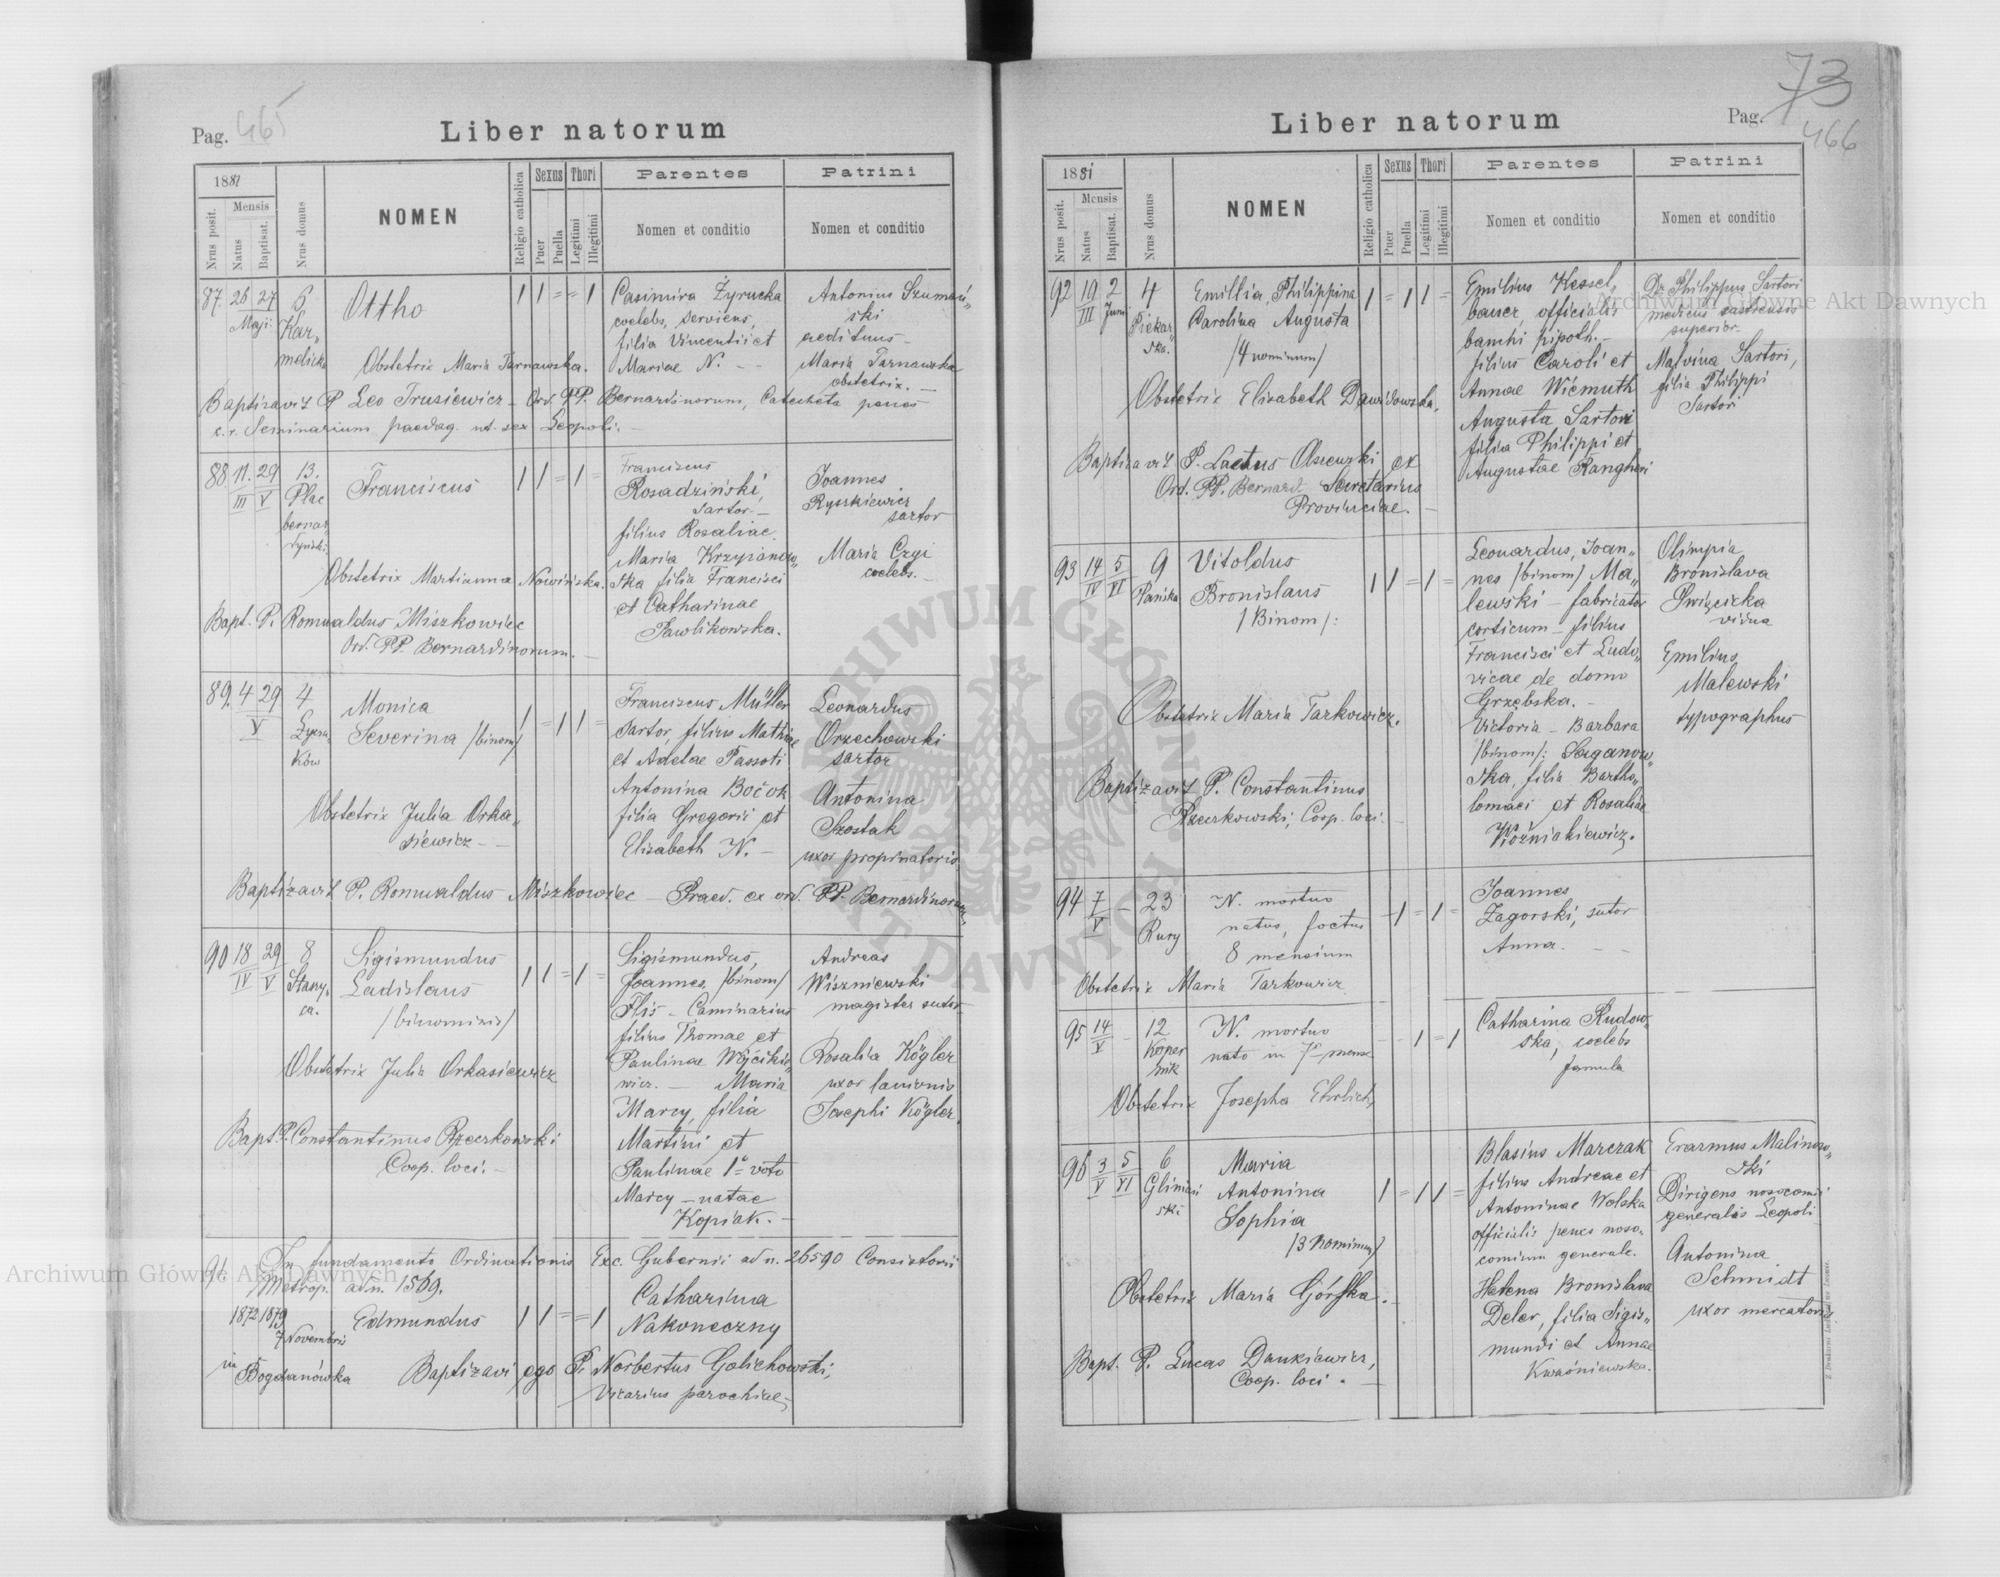 Pag. 465
Liber natorum
1881
Nrus posit.
Mensis
Natus
Baptisat.
Nrus domus
NOMEN
Religio catholica
Sexus
Puer
Puella
Thori
Legitimi
Illegitimi
Parentes
Nomen et conditio
Patrini
Nomen et conditio
87. 26 27 Maji
6
Kar„
melicka
Ottho
Obstetrix Maria Tarnawska.
Casimira Żyrucka
coelebs, serviens,
filia Vincentii et
Mariae N. - -
Antonius Szumań„
ski
aedituus -
Maria Tarnawska
obstetrix. -
Baptizavit P Leo Trusiewicz - Ord PP. Bernardinorum, Catecheta penes
c. r. Seminarium paedag. ut. sex Leopoli. -
88. 11. 29
III V
13.
Plac
bernar„
dyński
Franciscus
Obstetrix Martianna Nowińska.
Franciscus
Rosadziński,
sartor. -
filius Rosaliae.
Maria Krzyżanow„
ska filia Francisci
et Catharinae
Pawlikowska.
Joannes
Ryszkiewicz
sartor
Maria Czyi
coelebs. -
Bapt. P. Romualdus Miszkowiec
Ord. PP. Bernardinorum. -
89. 4 29
V
4
Łycza„
ków
Monica
Severina /binom/
Obstetrix Julia Orka„
siewicz - -
Franciscus Müller
sartor, filius Mathiae
et Adelae Passoti
Antonina Boćok
filia Gregorii et
Elisabeth N. -
Leonardus
Orzechowski
sartor
Antonina
Szostak
uxor propinatoris
Baptizavit P. Romualdus Miszkowiec - Praed. ex ord. PP. Bernardinorum.
90 18 29
IV V
8
Sigismundus
Ladislaus
/binominis/
Obstetrix Julia Orkasiewicz
Sigismundus,
Joannes, /binom/
Flis - Caminarius
filius Thomae et
Paulinae Wójcikie„
wicz. - Maria
Marcy, filia
Martini et
Paulinae 1o voto
Marcy - natae
Kopiak. -
Andreas
Wiszniewski
magister sutor
Rosalia Kögler
uxor lanionis
Josephi Kögler.
Bapt. P. Constantinus Rzeczkowski
Coop. loci. -
91 In fundamento Ordinationis Exc. Gubernii ad n. 26590 Consistorii
Metrop. ad n. 1569.
1872 1879
7 Novembris
in Bogdanówka
Edmundus
Catharina
Nakoneczny
Baptizavi ego P. Norbertus Golichowski,
Vicarius parochiae
73
Pag. 466
Liber natorum
1881
Nrus posit.
Mensis
Natus
Baptisat.
Nrus domus
NOMEN
Religio catholica
Sexus
Puer
Puella
Thori
Legitimi
Illegitimi
Parentes
Nomen et conditio
Patrini
Nomen et conditio
92 19 2
III Juni
4
Piekar„
ska.
Emillia, Philippina
Carolina Augusta
/4 nominum/
Obstetrix Elisabeth Dawidowska.
Emilius Kessel„
bauer, officialis
banchi hipoth. -
filius Caroli et
Annae Wiemuth
Augusta Sartori
filia Philippi et
Augustae Rangheri
Dr Philippus Sartori
medicus castrensis
superior -
Malvina Sartori,
filia Philippi
Sartori
Baptizavit P. Laetus Olszewski, ex
Ord. PP. Bernard. Secretarius
Provinciae. -
93 14 5
IV VI
9
Pańska
Vitoldus
Bronislaus
/Binom/:
Obstetrix Maria Tarkowicz.
Leonardus, Joan„
nes /binom/ Ma„
lewski - fabricator
corticum - filius
Francisci et Ludo„
vicae de domo
Grzębska. -
Victoria - Barbara
/binom/:
ska, filia Bartho„
lomaei et Rosaliae
Woźniakiewicz.
Olimpia
Bronislava
vidua
Emilius
Malewski
typographus
Baptizavit P. Constantinus
Rzeczkowski, Coop. loci. -
94 7 -
V
23
Rury
N. mortuo
natus, foetus
8 mensium
Joannes
Zagorski, sutor
Anna. - -
Obstetrix Maria Tarkowicz
95 14 -
V
12
Koper
nik
N. mortuo
nato in 7o mense
Catharina Rudow„
ska, coelebs
famula
Obstetrix Josepha Ehrlich,
96 3 5
V VI
6
Gliniań
ski
Maria
Antonina
Sophia
/3 nominum/
Obstetrix Maria Górska. -
Blasius Marczak
filius Andreae et
Antoninae Wolska
officialis penes noso„
comium generale.
Helena Bronislava
Deler, filia Sigis„
mundi et Annae
Kwaśniewska.
Erasmus Malinow„
ski
Dirigens nosocomii
generalis Leopoli
Antonina
Schmidt
uxor mercatoris
Bapt. P. Lucas Dankiewicz,
Coop. loci. -
Archiwum Główne Akt Dawnych
Archiwum Główne Akt Dawnych
ARCHIWUM GŁÓWNE AKT DAWNYCH